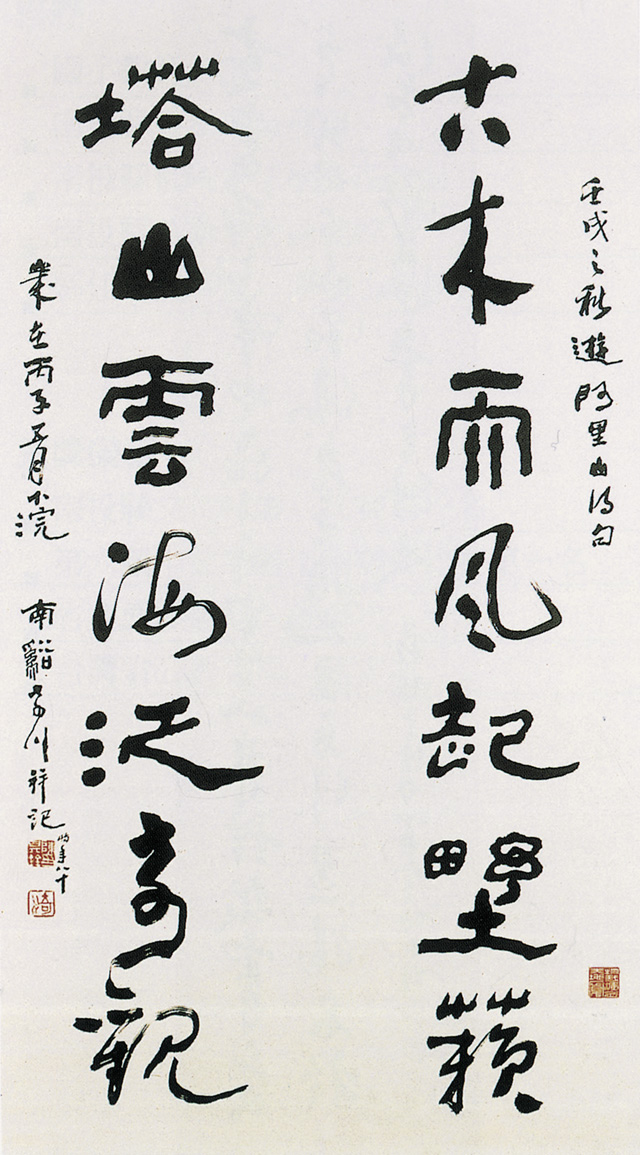 壬戌之秋遊阿里山得句
古木雨風起野籟
塔山雲海泛奇觀
歲在丙子五月小浣 南谿奇川并記
時年八十